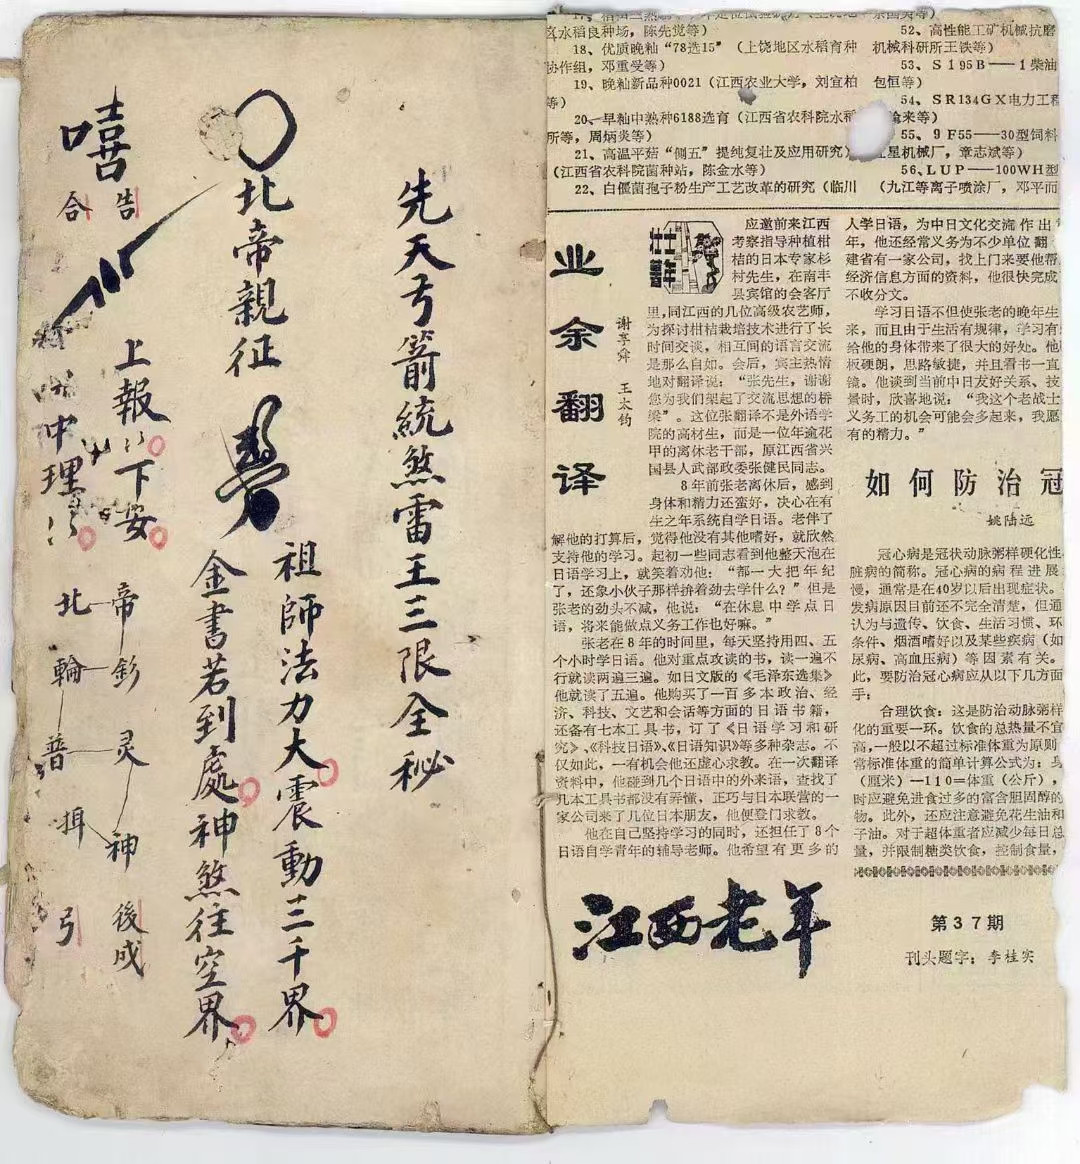 先天弓箭統煞雷王三限全秘
北帝親征
祖師法力大震動三千界
金書若到處神煞往空界
上報下安
中理
嘻
告
合
帝彭灵神後成
北輪普揖弓
区水稻良种场，陈先觉等）
18、优质晚籼“78选15”（上饶地区水稻育种
协作组，邓重受等）
19、晚籼新品种0021（江西农业大学，刘宜柏
等）
20、早籼中熟种6188选育（江西省农科院水稻
所等，周炳炎等）
21、高温平菇“侧五”提纯复壮及应用研究）
（江西省农科院菌种站，陈金水等）
22、白僵菌孢子粉生产工艺改革的研究（临川
52、高性能工矿机械抗磨
机械科研所王铁等）
53、S195B——1柴油
包恒等）
54、SR134GX电力工程
等）
55、9F55——30型饲料
星机械厂，章志斌等）
56、LUP——100WH型
（九江等离子喷涂厂，邓平而
业余翻译
谢享舜 王太钧
壮士暮年
应邀前来江西
考察指导种植柑
桔的日本专家杉
村先生，在南丰
县宾馆的会客厅
里，同江西的几位高级农艺师，
为探讨柑桔栽培技术进行了长
时间交谈，相互间的语言交流
是那么自如。会后，宾主热情
地对翻译说：“张先生，谢谢
您为我们架起了交流思想的桥
梁”。这位张翻译不是外语学
院的高材生，而是一位年逾花
甲的离休老干部，原江西省兴
国县人武部政委张健民同志。
8年前张老离休后，感到
身体和精力还蛮好，决心在有
生之年系统自学日语。老伴了
解他的打算后，觉得他没有其他嗜好，就欣然
支持他的学习。起初一些同志看到他整天泡在
日语学习上，就笑着劝他：“都一大把年纪
了，还象小伙子那样拚着劲去学什么？”但是
张老的劲头不减，他说：“在休息中学点日
语，将来能做点义务工作也好嘛。”
张老在8年的时间里，每天坚持用四、五
个小时学日语。他对重点攻读的书，读一遍不
行就读两遍三遍。如日文版的《毛泽东选集》
他就读了五遍。他购买了一百多本政治、经
济、科技、文艺和会话等方面的日语书籍，
还备有七本工具书，订了《日语学习和研
究》、《科技日语》、《日语知识》等多种杂志。不
仅如此，一有机会他还虚心求教。在一次翻译
资料中，他碰到几个日语中的外来语，查找了
几本工具书都没有弄懂，正巧与日本联营的一
家公司来了几位日本朋友，他便登门求教。
他在自己坚持学习的同时，还担任了8个
日语自学青年的辅导老师。他希望有更多的
人学日语，为中日文化交流作出
年，他还经常义务为不少单位翻
建省有一家公司，找上门来要他帮
经济信息方面的资料，他很快完成
不收分文。
学习日语不但使张老的晚年生
来，而且由于生活有规律，学习有
给他的身体带来了很大的好处。他
板硬朗，思路敏捷，并且看书一直
镜。他谈到当前中日友好关系、技
景时，欣喜地说：“我这个老战士
义务工的机会可能会多起来，我愿
有的精力。”
如何防治冠
姚陆远
冠心病是冠状动脉粥样硬化性
脏病的简称。冠心病的病程进展
慢，通常是在40岁以后出现症状。
发病原因目前还不完全清楚，但通
认为与遗传、饮食、生活习惯、环
条件、烟酒嗜好以及某些疾病（如
尿病、高血压病）等因素有关。
此，要防治冠心病应从以下几方面
手：
合理饮食：这是防治动脉粥样
化的重要一环。饮食的总热量不宜
高，一般以不超过标准体重为原则
常标准体重的简单计算公式为：身
（厘米）—110＝体重（公斤），
时应避免进食过多的富含胆固醇的
物。此外，还应注意避免花生油和
子油。对于超体重者应减少每日总
量，并限制糖类饮食，控制食量，
江西老年
第37期
刊头题字：李桂实